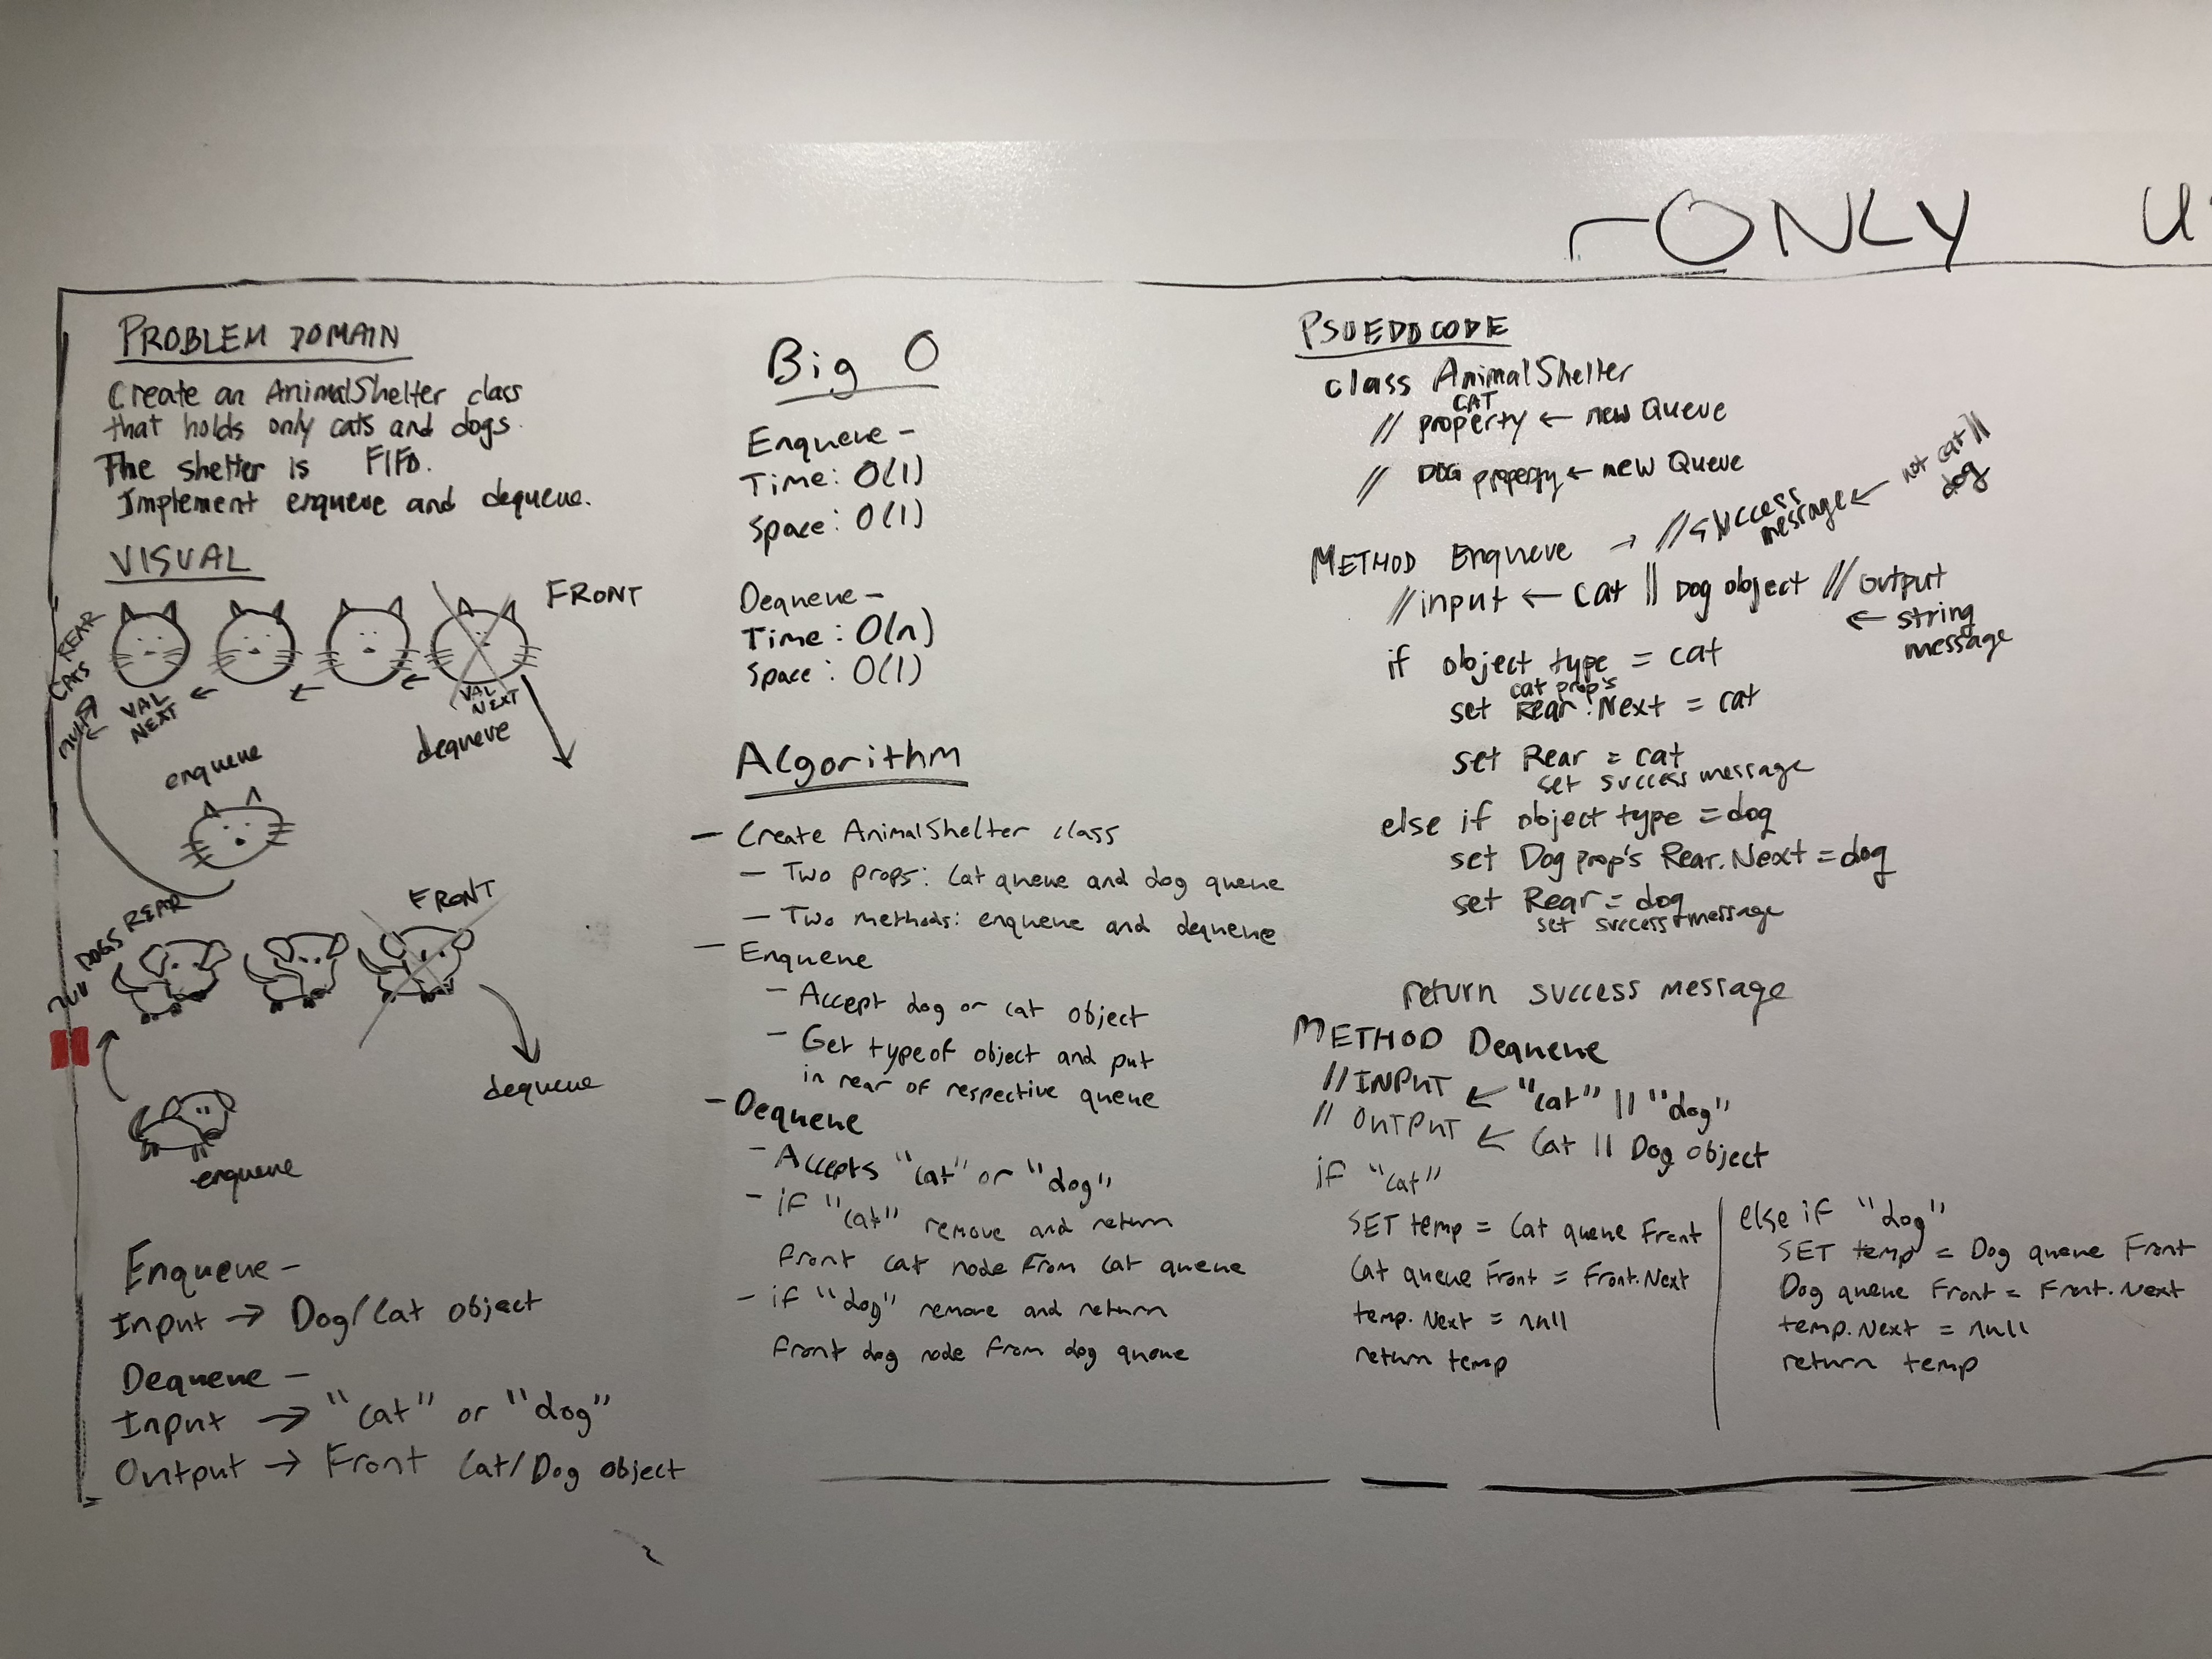 ONLY
PROBLEM DOMAIN
Create an AnimalShelter class
that holds only cats and dogs.
The shelter is FIFO.
Implement enqueue and dequeue.
VISUAL
FRONT
REAR
CATS
null
VAL
NEXT
VAL
NEXT
dequeue
enqueue
FRONT
DOGS REAR
null
dequeue
enqueue
Enqueue -
Input → Dog/Cat object
Dequeue -
Input → "cat" or "dog"
Output → Front Cat/Dog object
Big O
Enqueue -
Time: O(1)
Space: O(1)
Dequeue -
Time: O(n)
Space: O(1)
Algorithm
- Create AnimalShelter class
- Two props: Cat queue and dog queue
- Two methods: enqueue and dequeue
- Enqueue
- Accept dog or cat object
- Get typeof object and put
in rear of respective queue
- Dequeue
- Accepts "cat" or "dog"
- if "cat" remove and return
front cat node from cat queue
- if "dog" remove and return
front dog node from dog queue
PSUEDOCODE
class AnimalShelter
CAT
// property ← new Queue
// DOG property ← new Queue
METHOD Enqueue → // success
message ← not cat ||
dog
// input ← Cat || Dog object // output
← string
message
if object type = cat
cat prop's
set Rear.Next = cat
set Rear = cat
set success message
else if object type = dog
set Dog prop's Rear.Next = dog
set Rear = dog
set success message
return success message
METHOD Dequeue
// INPUT ← "cat" || "dog"
// OUTPUT ← Cat || Dog object
if "cat"
SET temp = Cat queue Front
Cat queue Front = Front.Next
temp.Next = null
return temp
else if "dog"
SET temp = Dog queue Front
Dog queue Front = Front.Next
temp.Next = null
return temp